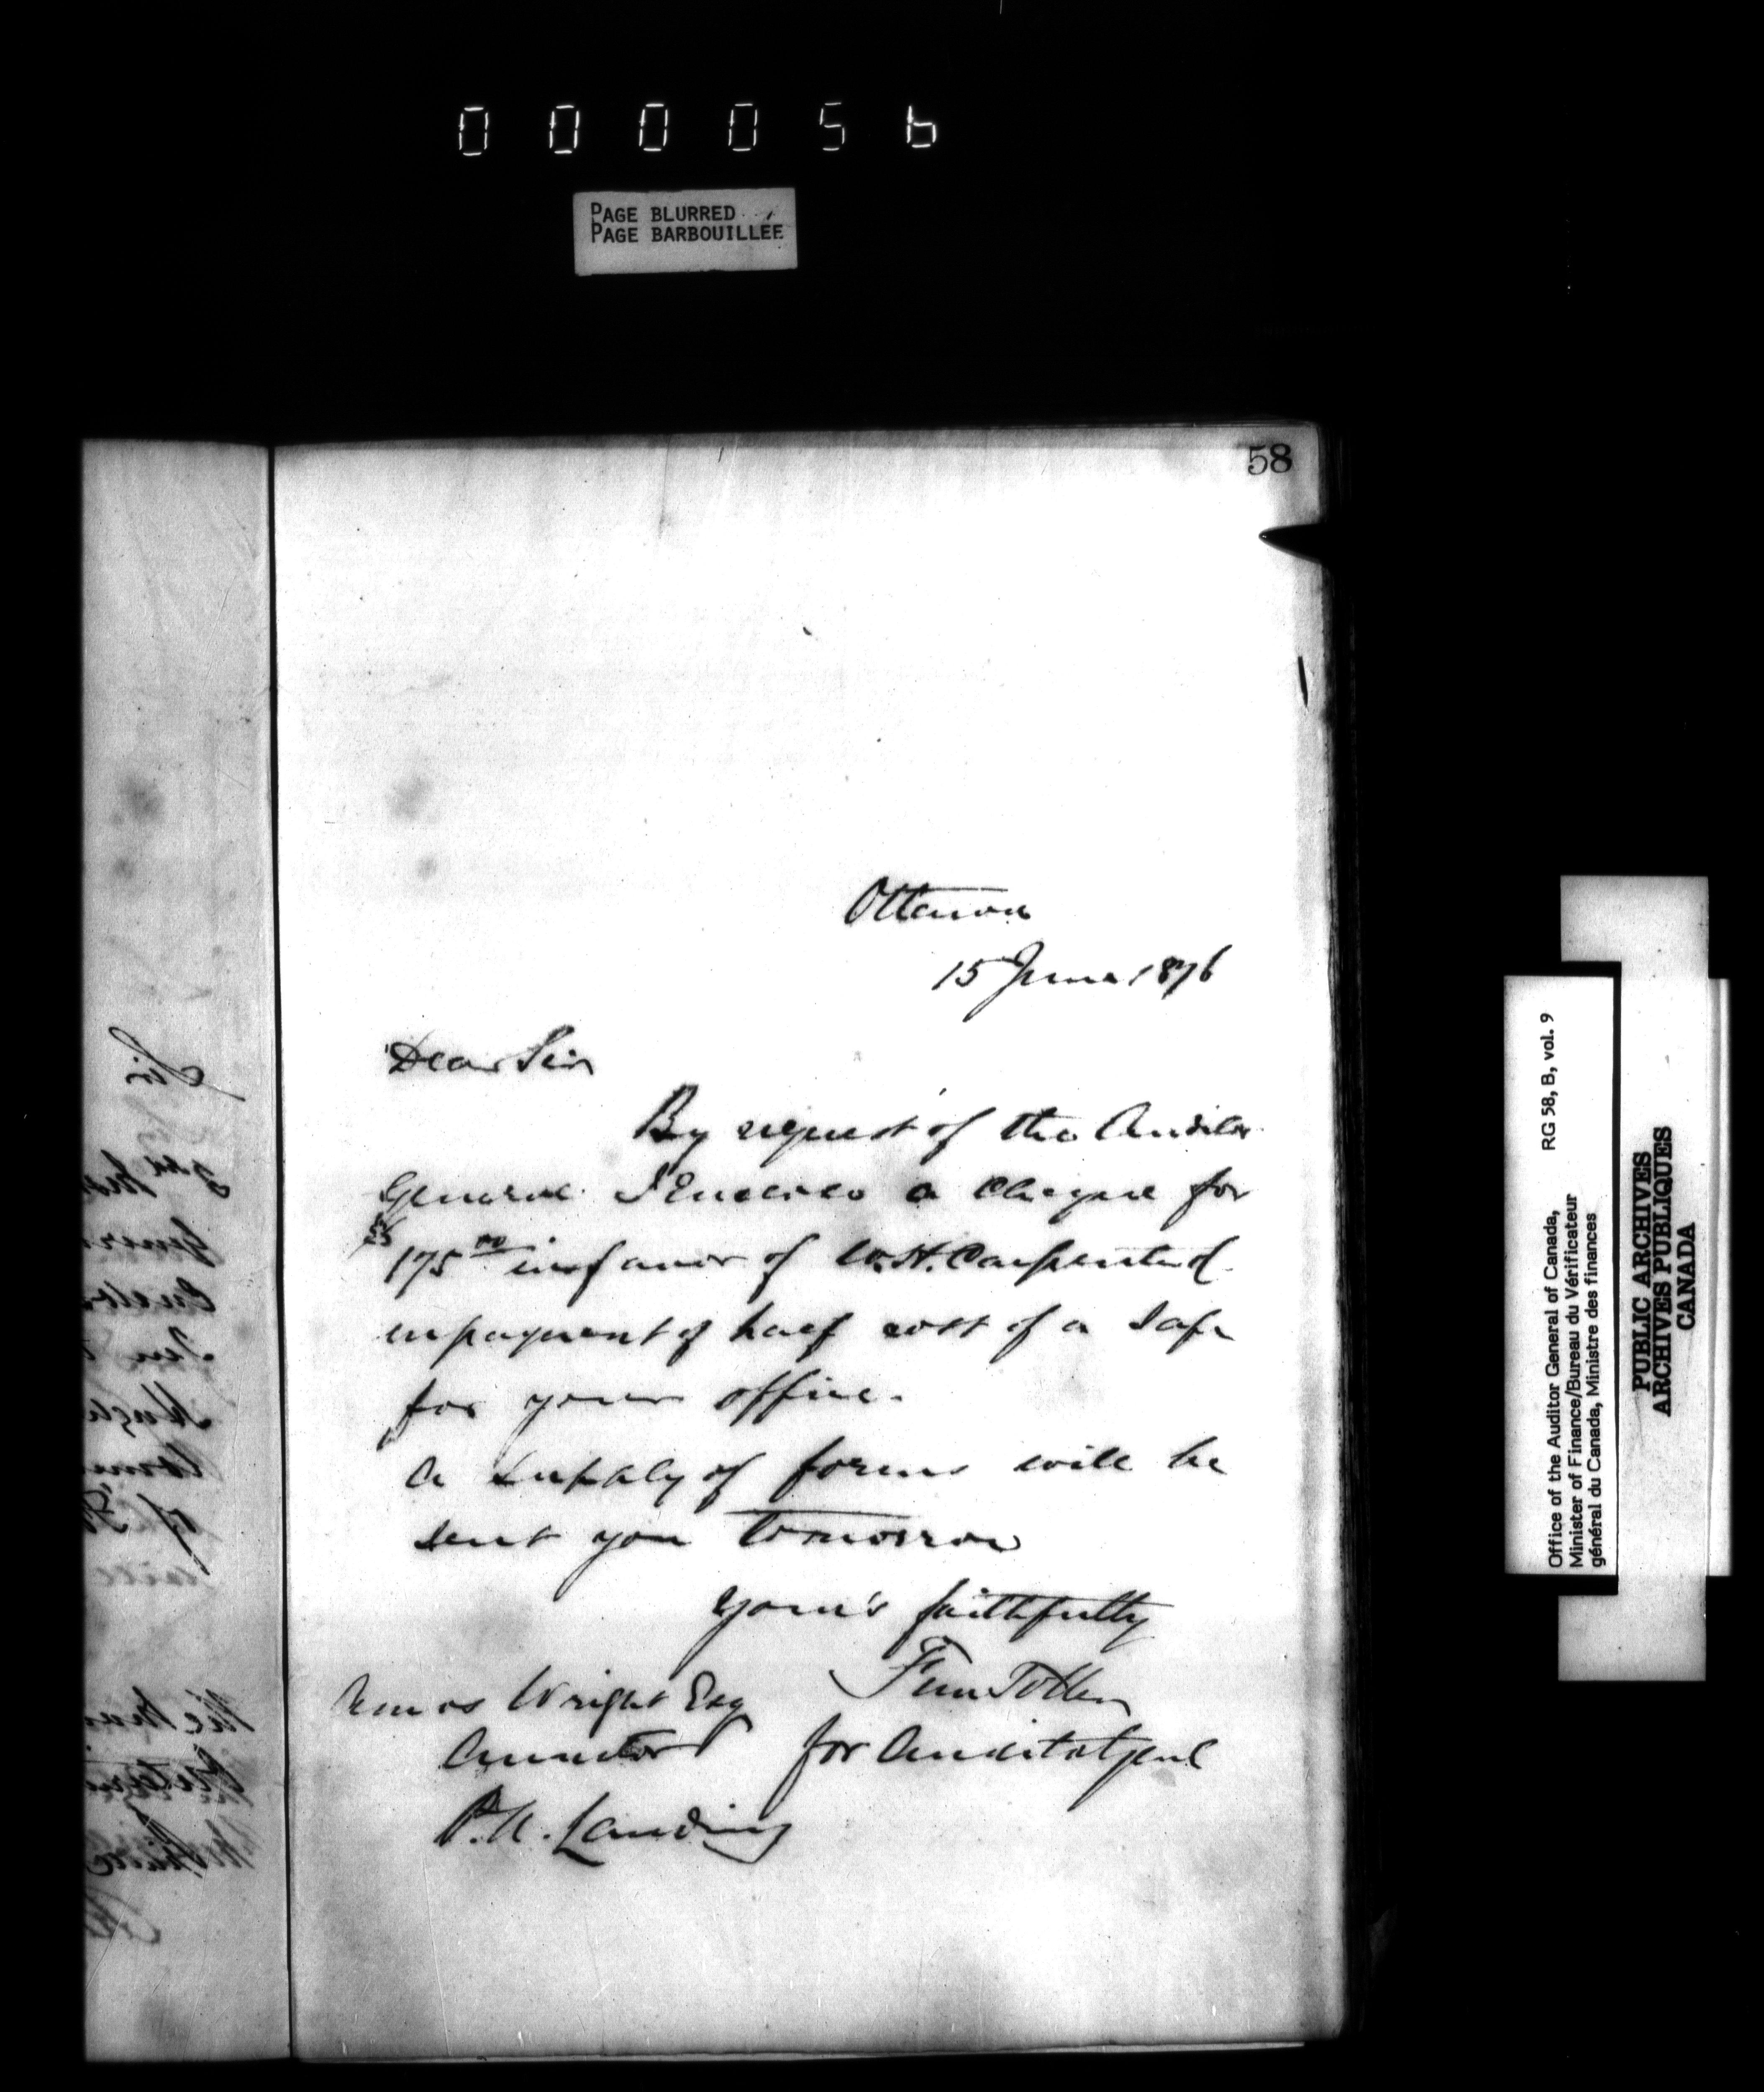 000056
PAGE BLURRED
PAGE BARBOUILLÉE
58
Ottawa
15 June 1876
Dear Sir
By request of the Auditor
General I Enclose a Cheque for
$175.00 in favor of W.H. Carpenter
in payment of half cost of a Safe
for your office.
A supply of forms will be
sent you tomorrow
Your's faithfully
Amos Wright Esq
for Auditor Genl
P.A. Landing
Office of the Auditor General of Canada, RG 58, B, vol. 9
Minister of Finance/Bureau du Vérificateur
général du Canada, Ministre des finances
PUBLIC ARCHIVES
ARCHIVES PUBLIQUES
CANADA